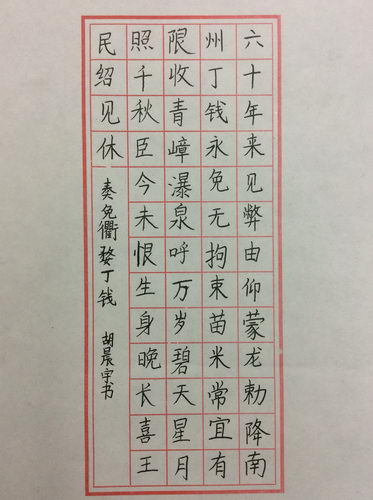 六十年来见弊由仰蒙龙勅降南
州丁钱永免无拘束苗米常宜有
限收青嶂瀑泉呼万岁碧天星月
照千秋臣今未恨生身晚长喜王
民绍见休
奏免衢婺丁钱 胡晨宇书